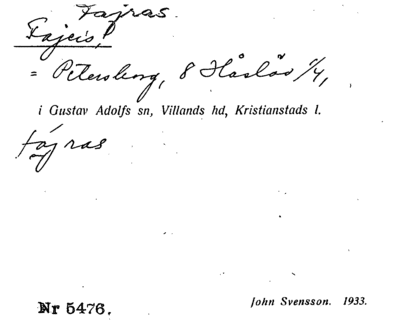 Fajras.
Fajeis,
= Petersborg, 8 Håslöv 1/4,
i Gustav Adolfs sn, Villands hd, Kristianstads l.
fajras
Nr 5476.
John Svensson. 1933.